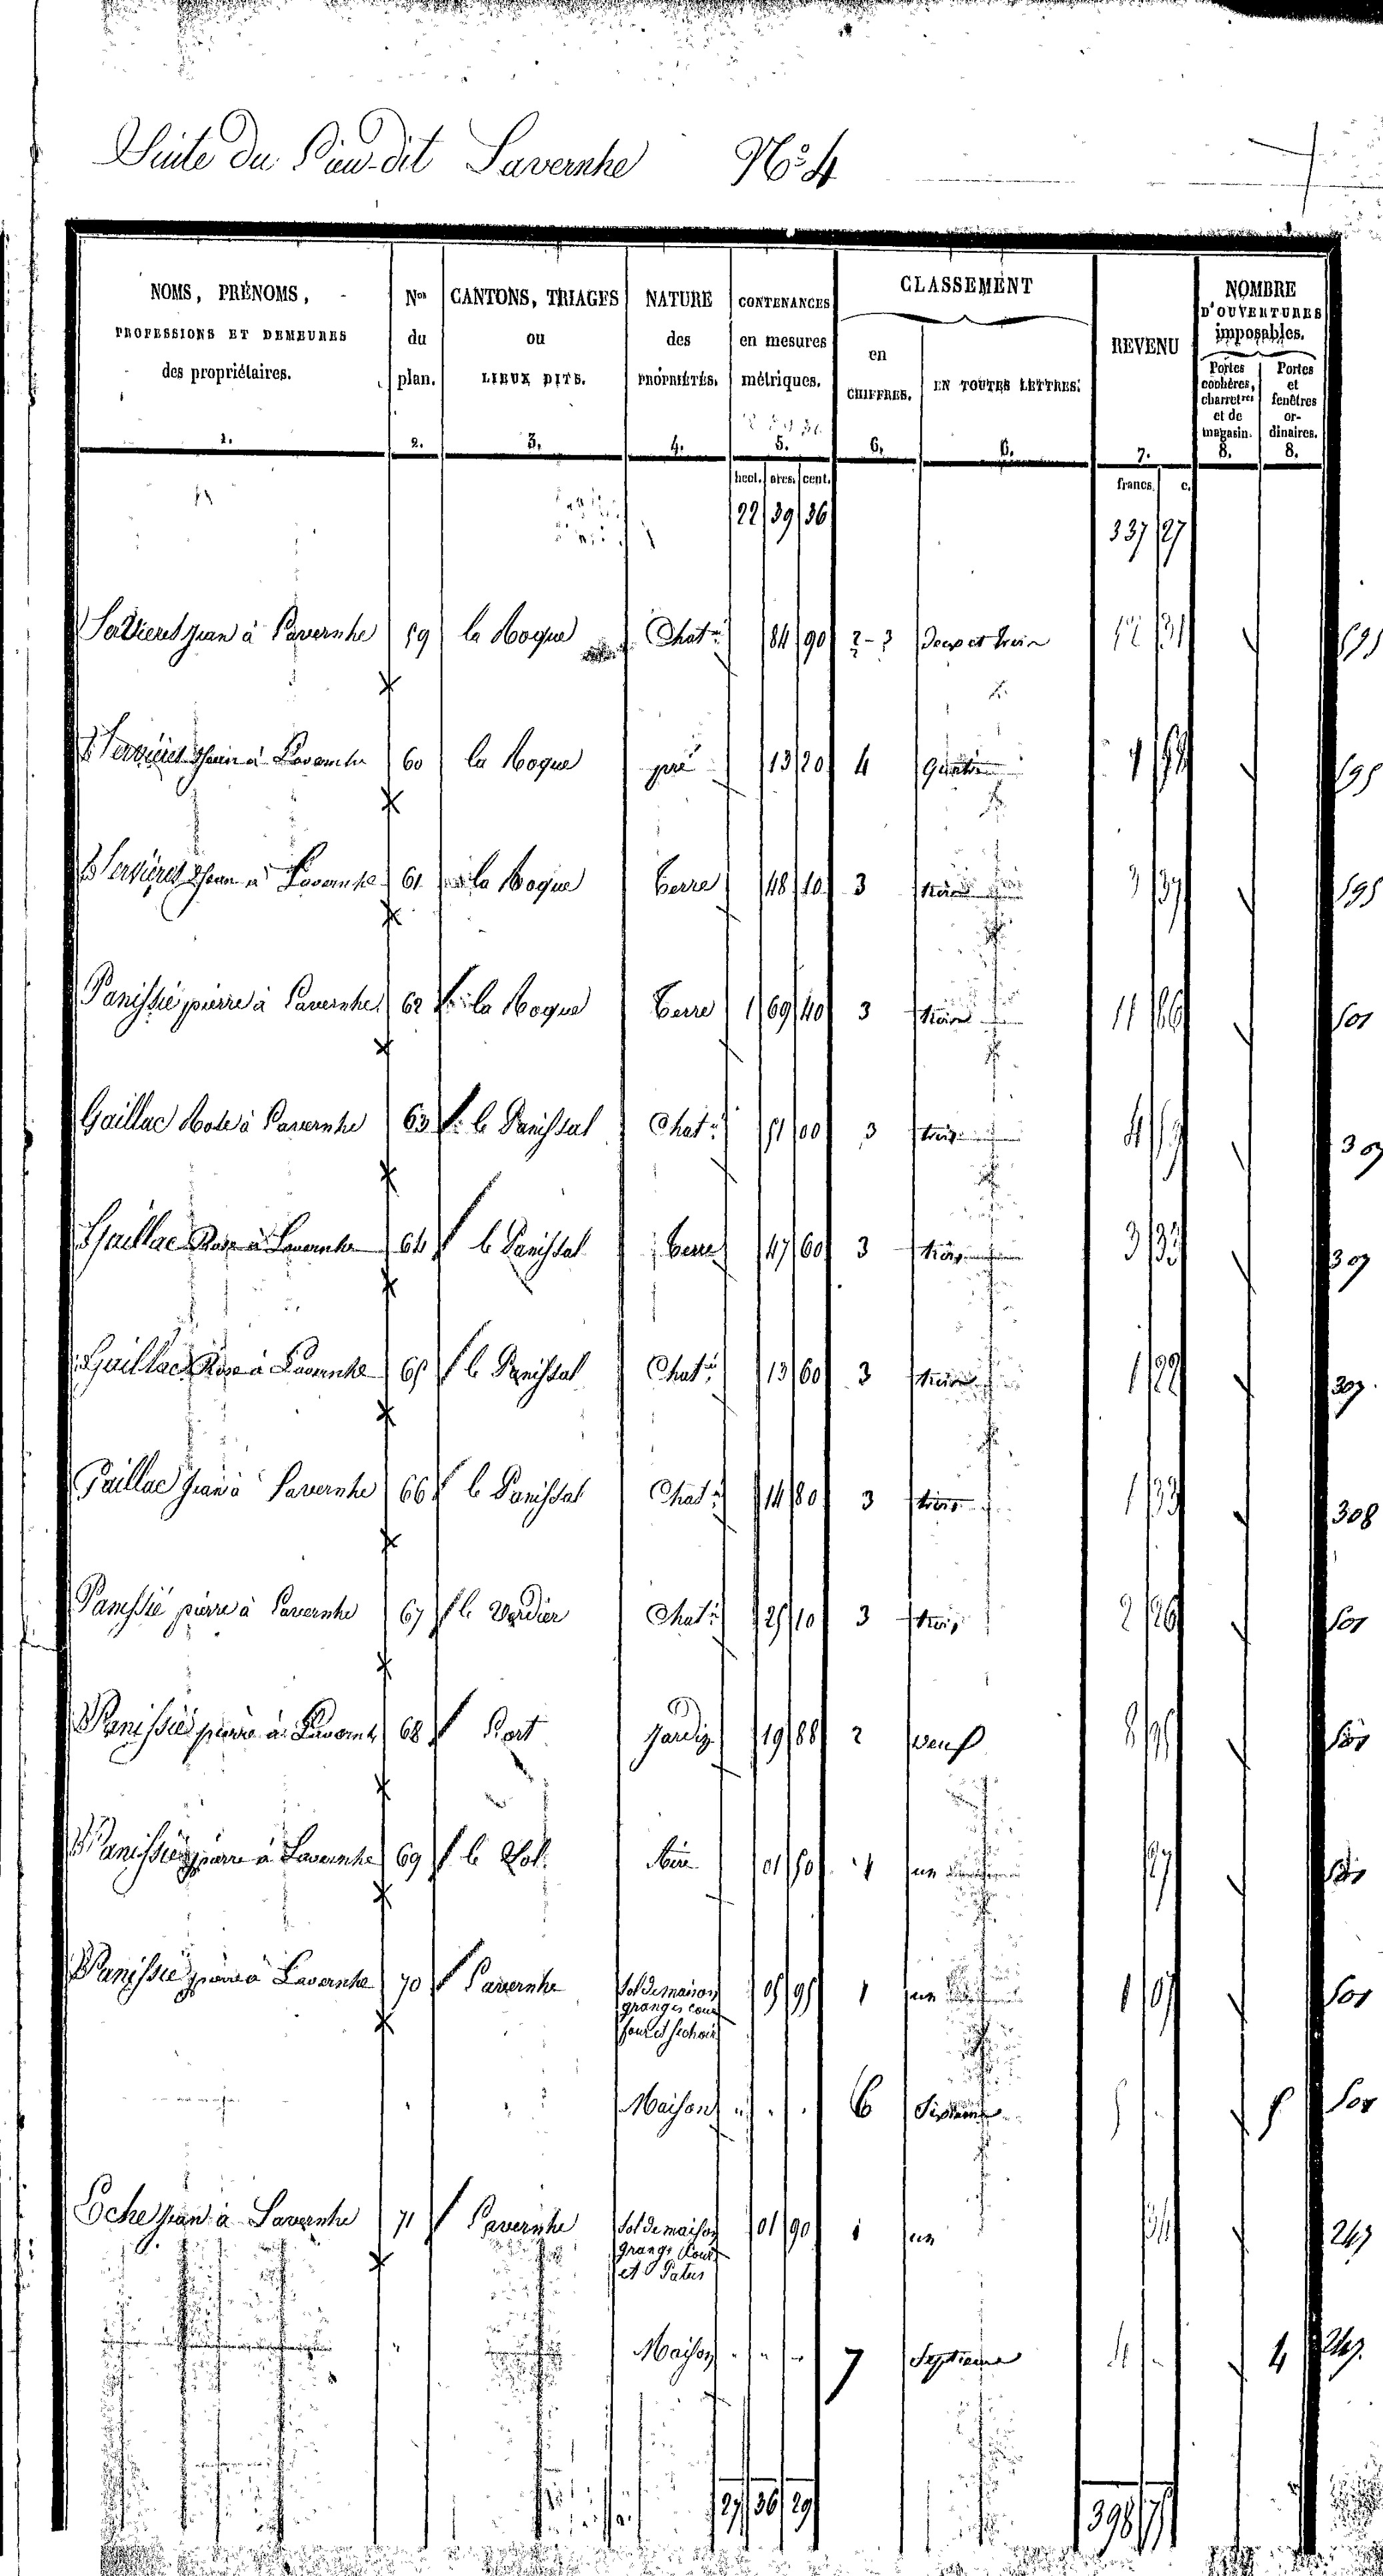 Suite du Lieu-dit Lavernhe N° 4
NOMS, PRÉNOMS,
PROFESSIONS ET DEMEURES
des propriétaires.
1.
Nos
du
plan.
2.
CANTONS, TRIAGES
ou
LIEUX DITS.
3.
NATURE
des
PROPRIÉTÉS.
4.
CONTENANCES
en mesures
métriques.
5.
CLASSEMENT
en
CHIFFRES.
6.
EN TOUTES LETTRES.
6.
REVENU
7.
NOMBRE
D'OUVERTURES
imposables.
Portes
cochères,
charretres
et de
magasin.
8.
Portes
et
fenêtres
or-
dinaires.
8.
hect. ares. cent. francs. c.
22 39 36 337 27
Servieres Jean à Lavernhe 59 la Roque Chatre 84 90 2-3 Deux et trois 12 31 595
Servières Jean à Lavernhe 60 la Roque pré 13 20 4 Quatre 595
Servières Jean à Lavernhe 61 la Roque Terre 48 10 3 trois 3 37 595
Panissié pierre à Lavernhe 62 la Roque Terre 1 69 40 3 trois 11 86 501
Gaillac Rose à Lavernhe 63 le Panissal Chatre 51 00 3 trois 4 59 307
Gaillac Rose à Lavernhe 64 le Panissal Terre 47 60 3 trois 3 33 307
Gaillac Rose à Lavernhe 65 le Panissal Chatre 13 60 3 trois 1 22 307
Gaillac Jean à Lavernhe 66 le Panissal Chatre 14 80 3 trois 1 33 308
Panissié pierre à Lavernhe 67 le Verdier Chatre 25 10 3 trois 2 26 501
Panissié pierre à Lavernhe 68 L'ort Jardin 19 88 2 Deux 8 95 501
Panissié pierre à Lavernhe 69 le Sol Aire 01 50 1 un 27 501
Panissié pierre à Lavernhe 70 Lavernhe Sol de maison 05 95 1 un 1 07 501
granges cour
four et sechoir
Maison 6 Sixieme 5 5 501
Coche Jean à Lavernhe 71 Lavernhe Sol de maison 01 90 1 un 34 247
grange Cour
et Patus
Maison 7 Septieme 4 4 247
27 36 29 398 71